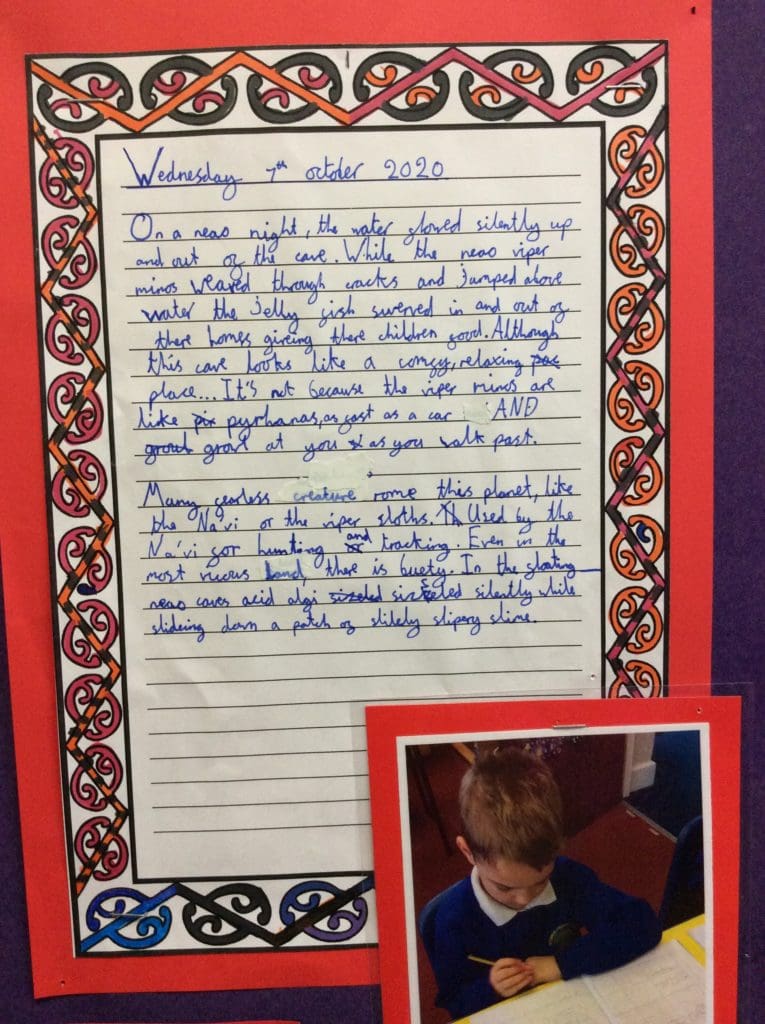 Wednesday 7th october 2020
On a neao night, the water glowed silently up
and out of the cave. While the neao viper
minos weaved through cracks and jumped above
water the jelly fish swerved in and out of
there homes giveing there children good. Although
this cave looks like a comfy, relaxing
place... It's not because the viper minos are
like pyrhanas, as fast as a car AND
growl at you as you walk past.
Many fearless creature rome this planet, like
the Na'vi or the viper sloths. Used by the
Na'vi for hunting and tracking. Even in the
most vicous land, there is buety. In the floating
neao caves acid algi silently while
slideing down a patch of slipery slime.